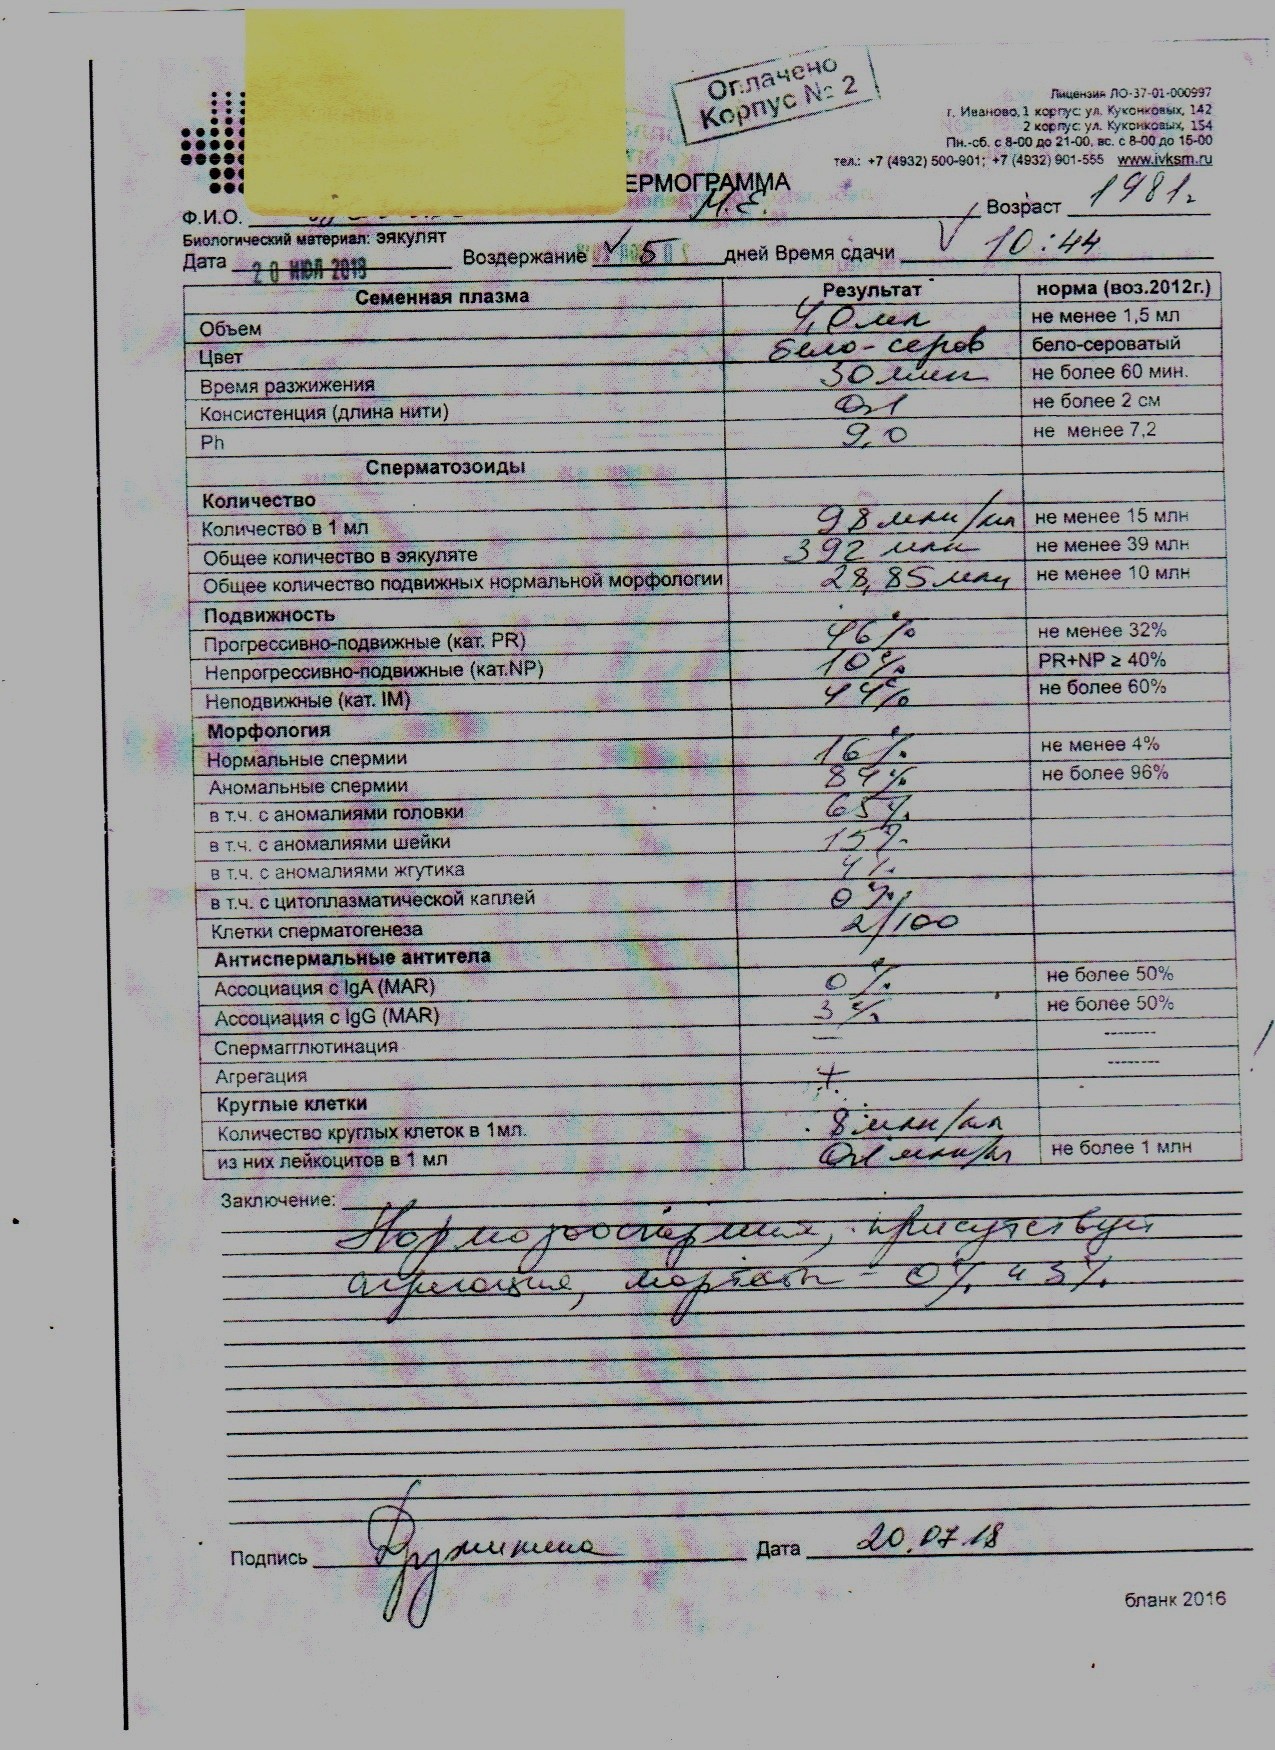 Оплачено
Корпус № 2
Лицензия ЛО-37-01-000997
г. Иваново, 1 корпус: ул. Куконковых, 142
2 корпус: ул. Куконковых, 154
Пн.-сб. с 8-00 до 21-00, вс. с 8-00 до 15-00
тел.: +7 (4932) 500-901; +7 (4932) 901-555 www.ivksm.ru
ЕРМОГРАММА
Ф.И.О. М.Е. Возраст 1981г.
Биологический материал: эякулят
Дата 20 ИЮЛ 2018 Воздержание 5 дней Время сдачи 10:44
Семенная плазма Результат норма (воз.2012г.)
Объем 4,0 мл не менее 1,5 мл
Цвет бело-серов бело-сероватый
Время разжижения 30 мин не более 60 мин.
Консистенция (длина нити) 0,1 не более 2 см
Ph 9,0 не менее 7,2
Сперматозоиды
Количество
Количество в 1 мл 98 млн/мл не менее 15 млн
Общее количество в эякуляте 392 млн не менее 39 млн
Общее количество подвижных нормальной морфологии 28,85 млн не менее 10 млн
Подвижность
Прогрессивно-подвижные (кат. PR) 46% не менее 32%
Непрогрессивно-подвижные (кат.NP) 10% PR+NP ≥ 40%
Неподвижные (кат. IM) 44% не более 60%
Морфология
Нормальные спермии 16% не менее 4%
Аномальные спермии 84% не более 96%
в т.ч. с аномалиями головки 65%
в т.ч. с аномалиями шейки 15%
в т.ч. с аномалиями жгутика 4%
в т.ч. с цитоплазматической каплей 0%
Клетки сперматогенеза 2/100
Антиспермальные антитела
Ассоциация с IgA (MAR) 0% не более 50%
Ассоциация с IgG (MAR) 3% не более 50%
Спермагглютинация – --------
Агрегация + --------
Круглые клетки
Количество круглых клеток в 1мл. 8 млн/мл
из них лейкоцитов в 1 мл 0,1 млн/мл не более 1 млн
Заключение:
Нормозооспермия, присутствует
агрегация, - 0% и 3%.
Подпись Дружинина Дата 20.07.18
бланк 2016